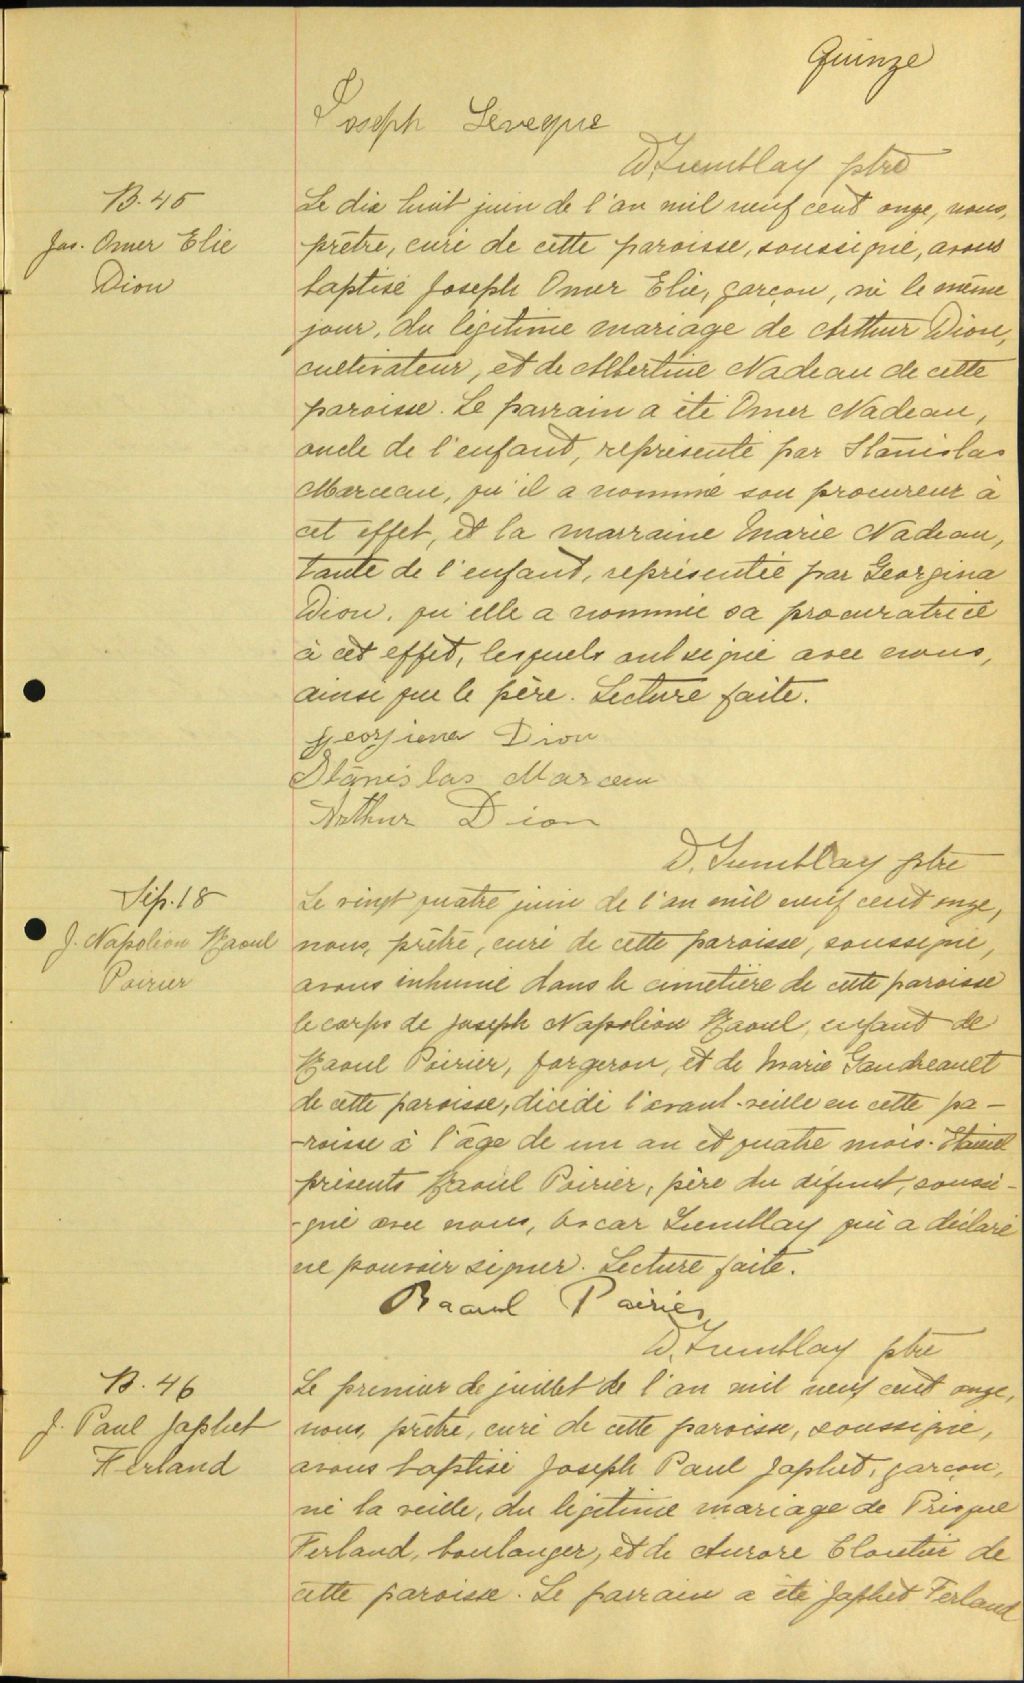 Quinze
Joseph Leveque
D. Tremblay ptre
B. 45
Jos. Omer Elie
Dion
Le dix huit juin de l'an mil neuf cent onze, nous,
prêtre, curé de cette paroisse, soussigné, avons
baptisé Joseph Omer Elie, garçon, né le même
jour, du légitime mariage de Arthur Dion,
cultivateur, et de Albertine Nadeau de cette
paroisse. Le parrain a été Omer Nadeau,
oncle de l'enfant, représenté par Stanislas
Marceau, qu'il a nommé son procureur à
cet effet, et la marraine Marie Nadeau,
tante de l'enfant, représentée par Georgina
Dion, qu'elle a nommée sa procuratrice
à cet effet, lesquels ont signé avec nous,
ainsi que le père. Lecture faite.
Georgiena Dion
Stanislas Marceau
Arthur Dion
D. Tremblay ptre
Sép. 18
J. Napoléon Raoul
Poirier
Le vingt quatre juin de l'an mil neuf cent onze,
nous, prêtre, curé de cette paroisse, soussigné,
avons inhumé dans le cimetière de cette paroisse
le corps de Joseph Napoléon Raoul, enfant de
Raoul Poirier, forgeron, et de Marie Gaudreault
de cette paroisse, décédé l'avant-veille en cette pa-
-roisse à l'âge de un an et quatre mois. Etaient
présents Raoul Poirier, père du défunt, soussi-
-gné avec nous, Oscar Tremblay qui a déclaré
ne pouvoir signer. Lecture faite.
Raoul Poirier
D. Tremblay ptre
B. 46
J. Paul Japhet
Ferland
Le premier de juillet de l'an mil neuf cent onze,
nous, prêtre, curé de cette paroisse, soussigné,
avons baptisé Joseph Paul Japhet, garçon,
né la veille, du légitime mariage de Prisque
Ferland, boulanger, et de Aurore Cloutier de
cette paroisse. Le parrain a été Japhet Ferland